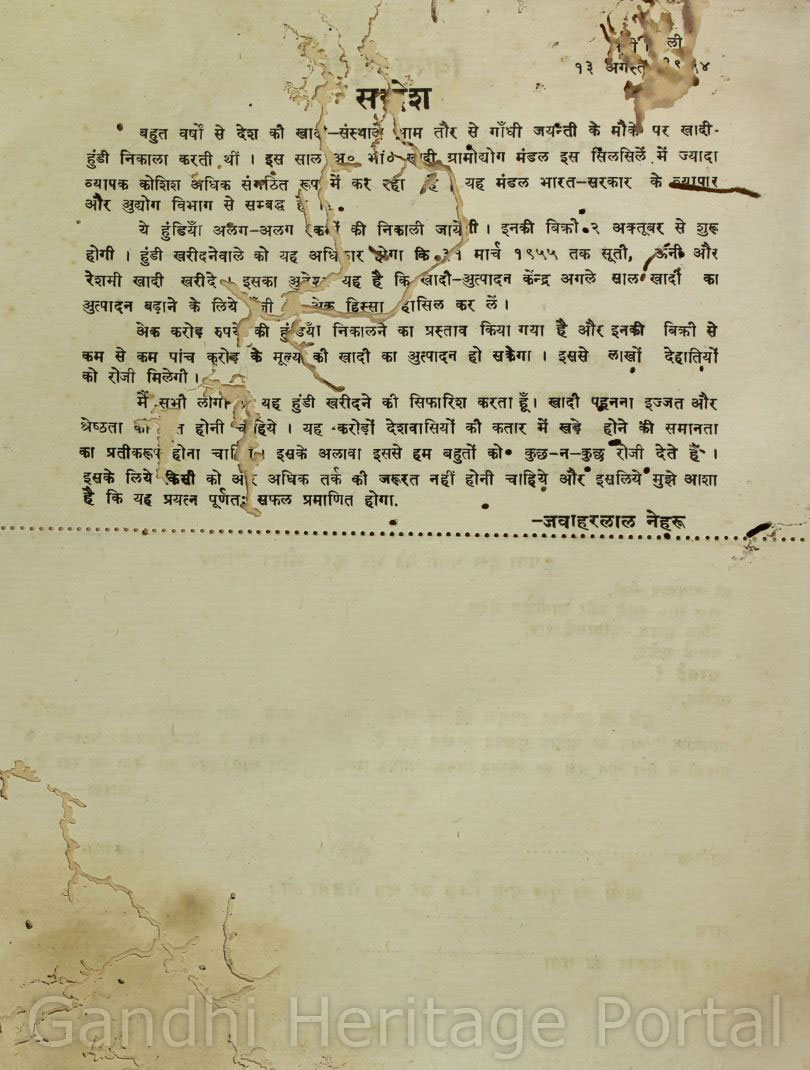 ली
१३ अगस्त
बहुत वर्षों से देश की खादी–संस्थाओं आम तौर से गाँधी जयन्ती के मौके पर खादी-
हुंडी निकाला करती थीं । इस साल अ० भा० खादी ग्रामोद्योग मंडल इस सिलसिले में ज्यादा
व्यापक कोशिश अधिक संगठित रूप में कर रहा है । यह मंडल भारत–सरकार के व्यापार
और अुद्योग विभाग से सम्बद्ध है ।
ये हुंडियाँ अलग-अलग रकमों की निकाली जायेंगी । इनकी बिक्री २ अक्तूबर से शुरू
होगी । हुंडी खरीदनेवाले को यह अधिकार होगा कि ३१ मार्च १९५५ तक सूती, ऊनी और
रेशमी खादी खरीदे । इसका अुद्देश यह है कि खादी–अुत्पादन केंन्द्र अगले साल खादी का
अुत्पादन बढ़ाने के लिये अेक हिस्सा हासिल कर लें ।
अेक करोड़ रुपये की हुंडियाँ निकालने का प्रस्ताव किया गया है और इनकी बिक्री से
कम से कम पांच करोड़ के मूल्य की खादी का अुत्पादन हो सकेगा । इससे लाखों देहातियों
को रोजी मिलेगी ।
मैं सभी लोगों यह हुंडी खरीदने की सिफारिश करता हूँ। खादी पहनना इज्जत और
श्रेष्ठता की होनी चाहिये । यह करोड़ों देशवासियों की कतार में खड़े होने की समानता
का प्रतीकरूप होना चाहिये । इसके अलावा इससे हम बहुतों को कुछ–न–कुछ रोजी देते हैं ।
इसके लिये किसी को और अधिक तर्क की जरूरत नहीं होनी चाहिये और इसलिये मुझे आशा
है कि यह प्रयत्न पूर्णतः सफल प्रमाणित होगा.
–जवाहरलाल नेहरू
Gandhi Heritage Portal